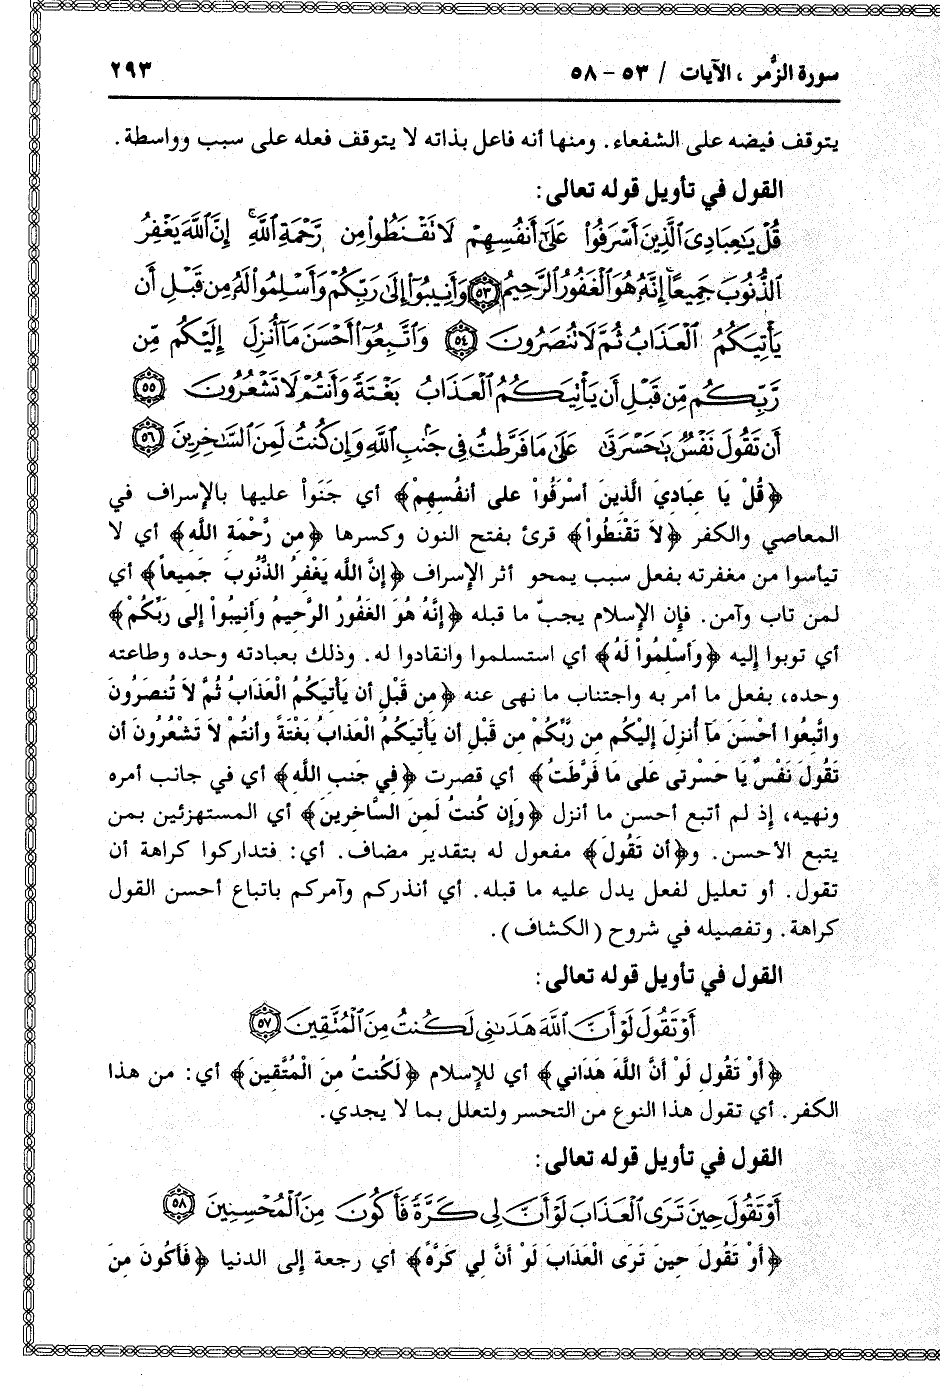 سورة الزُّمر ، الآيات / ٥٣ - ٥٨ ٢٩٣
يتوقف فيضه على الشفعاء. ومنها أنه فاعل بذاته لا يتوقف فعله على سبب وواسطة.
القول في تأويل قوله تعالى:
قُلْ يَٰعِبَادِىَ ٱلَّذِينَ أَسْرَفُوا۟ عَلَىٰٓ أَنفُسِهِمْ لَا تَقْنَطُوا۟ مِن رَّحْمَةِ ٱللَّهِ ۚ إِنَّ ٱللَّهَ يَغْفِرُ
ٱلذُّنُوبَ جَمِيعًا ۚ إِنَّهُۥ هُوَ ٱلْغَفُورُ ٱلرَّحِيمُ ٥٣ وَأَنِيبُوٓا۟ إِلَىٰ رَبِّكُمْ وَأَسْلِمُوا۟ لَهُۥ مِن قَبْلِ أَن
يَأْتِيَكُمُ ٱلْعَذَابُ ثُمَّ لَا تُنصَرُونَ ٥٤ وَٱتَّبِعُوٓا۟ أَحْسَنَ مَآ أُنزِلَ إِلَيْكُم مِّن
رَّبِّكُم مِّن قَبْلِ أَن يَأْتِيَكُمُ ٱلْعَذَابُ بَغْتَةً وَأَنتُمْ لَا تَشْعُرُونَ ٥٥
أَن تَقُولَ نَفْسٌ يَٰحَسْرَتَىٰ عَلَىٰ مَا فَرَّطتُ فِى جَنۢبِ ٱللَّهِ وَإِن كُنتُ لَمِنَ ٱلسَّٰخِرِينَ ٥٦
﴿قُلْ يَا عِبَادِيَ الَّذِينَ أَسْرَفُواْ على أنفُسِهِمْ﴾ أي جَنَواْ عليها بالإسراف في
المعاصي والكفر ﴿لاَ تَقْنَطُواْ﴾ قرئ بفتح النون وكسرها ﴿مِن رَّحْمَةِ الله﴾ أي لا
تيأسوا من مغفرته بفعل سبب يمحو أثر الإسراف ﴿إِنَّ الله يَغْفِرُ الذُّنُوبَ جَمِيعاً﴾ أي
لمن تاب وآمن. فإن الإسلام يجبّ ما قبله ﴿إِنَّهُ هُوَ الغَفُورُ الرَّحِيمُ وَأنِيبُواْ إلى رَبِّكُمْ﴾
أي توبوا إليه ﴿وَأَسْلِمُواْ لَهُ﴾ أي استسلموا وانقادوا له. وذلك بعبادته وحده وطاعته
وحده، بفعل ما أمر به واجتناب ما نهى عنه ﴿مِن قَبْلِ أن يَأْتِيَكُمُ الْعَذَابُ ثُمَّ لاَ تُنصَرُونَ
واتَّبِعُوا أَحْسَنَ مَآ أُنزِلَ إلَيْكُم مِن رَّبِّكُمْ مِن قَبْلِ أن يَأْتِيَكُمُ الْعَذَابُ بَغْتَةً وأنتُمْ لاَ تَشْعُرُونَ أن
تَقُولَ نَفْسٌ يَا حَسْرتى عَلى مَا فَرَّطَتُ﴾ أي قصرت ﴿فِي جَنبِ اللهِ﴾ أي في جانب أمره
ونهيه، إذ لم أتبع أحسن ما أنزل ﴿وَإن كُنتُ لَمِنَ السَّاخِرِينَ﴾ أي المستهزئين بمن
يتبع الأحسن. و﴿أن تَقُولَ﴾ مفعول له بتقدير مضاف. أي: فتداركوا كراهة أن
تقول. أو تعليل لفعل يدل عليه ما قبله. أي أنذركم وآمركم باتباع أحسن القول
كراهة. وتفصيله في شروح (الكشاف).
القول في تأويل قوله تعالى:
أَوْ تَقُولَ لَوْ أَنَّ ٱللَّهَ هَدَىٰنِى لَكُنتُ مِنَ ٱلْمُتَّقِينَ ٥٧
﴿أَوْ تَقُولَ لَوْ أَنَّ اللهَ هَدَاني﴾ أي للإسلام ﴿لَكُنتُ مِنَ الْمُتَّقينَ﴾ أي: من هذا
الكفر. أي تقول هذا النوع من التحسر ولتعلل بما لا يجدي.
القول في تأويل قوله تعالى:
أَوْ تَقُولَ حِينَ تَرَى ٱلْعَذَابَ لَوْ أَنَّ لِى كَرَّةً فَأَكُونَ مِنَ ٱلْمُحْسِنِينَ ٥٨
﴿أَوْ تَقُولَ حِينَ تَرَى الْعَذَابَ لَوْ أَنَّ لِي كَرَّةً﴾ أي رجعة إلى الدنيا ﴿فَأَكُونَ مِنَ